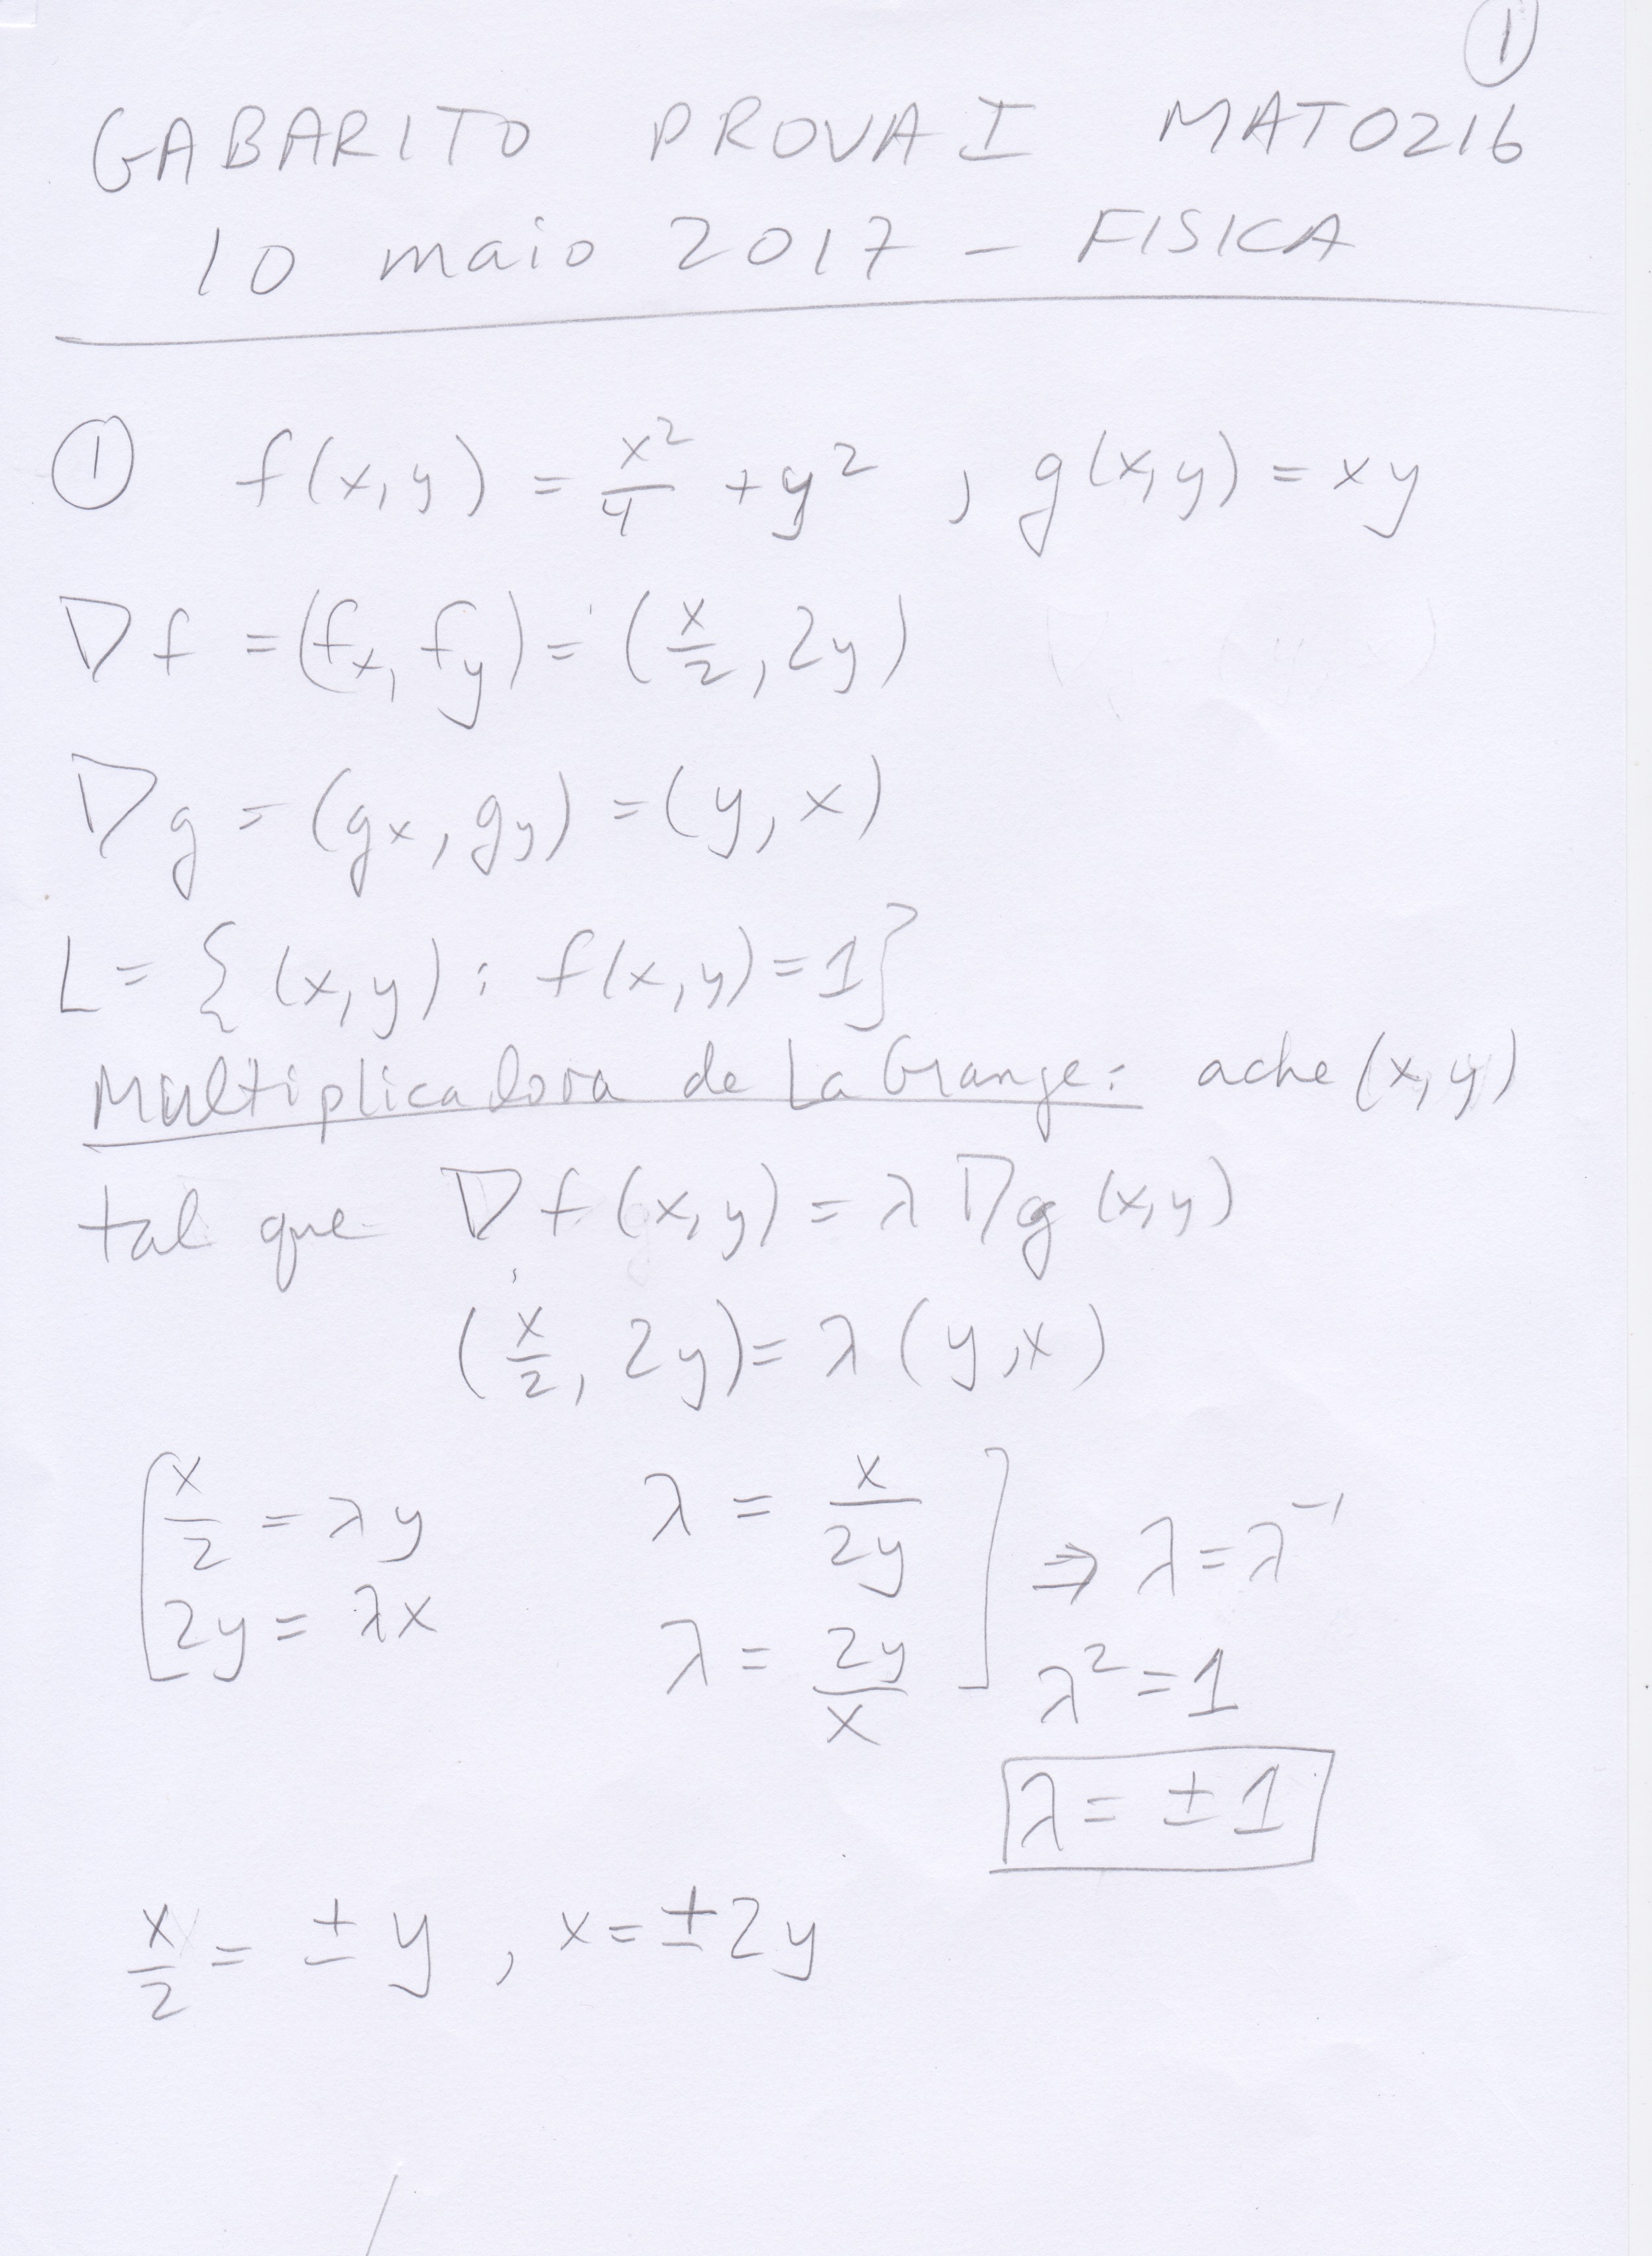 ①
GABARITO PROVA I MAT0216
10 maio 2017 – FISICA
① f(x,y) = x²/4 + y² , g(x,y) = xy
∇f = (fx, fy) = (x/2, 2y)
∇g = (gx, gy) = (y, x)
L = { (x,y) : f(x,y) = 1 }
Multiplicadora de LaGrange: ache (x,y)
tal que ∇f(x,y) = λ ∇g(x,y)
(x/2, 2y) = λ (y,x)
[ x/2 = λy λ = x/2y ] ⇒ λ = λ⁻¹
2y = λx λ = 2y/x λ² = 1
λ = ±1
x/2 = ± y , x = ±2y